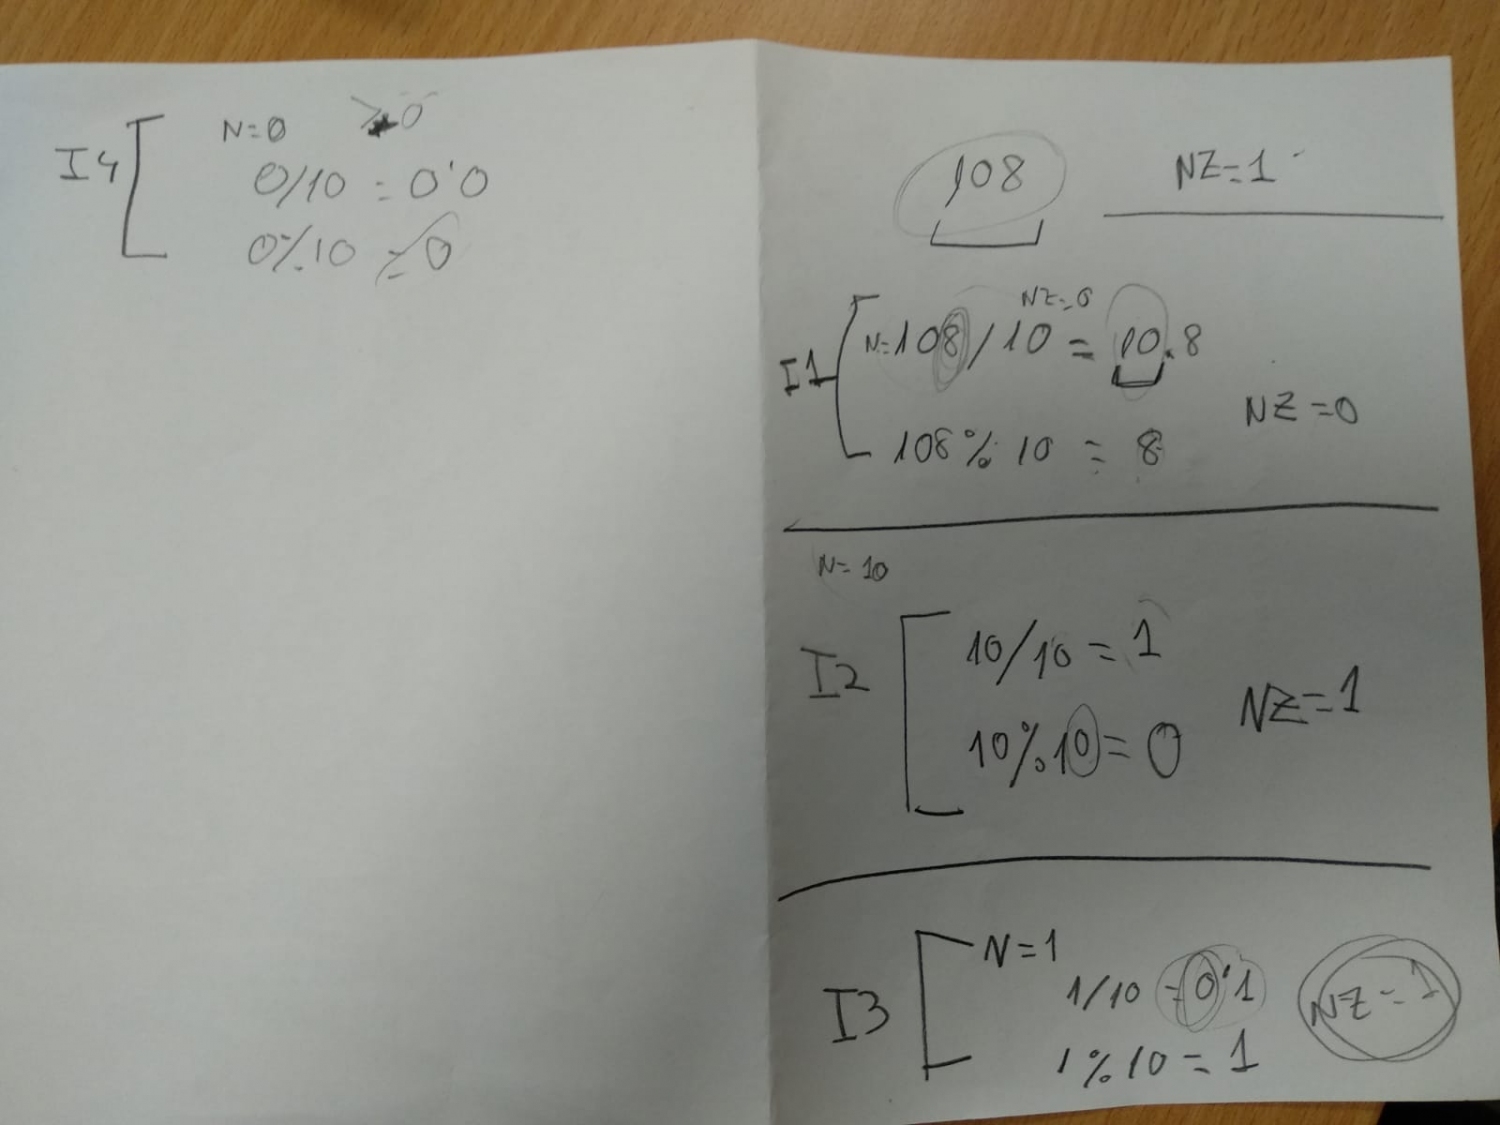 I4
N=0 >0
0/10 = 0'0
0%10 = 0
108 NZ=1
I1
NZ=0
N=108/10 = 10.8
NZ=0
108%10 = 8
N=10
I2
10/10 = 1
NZ=1
10%10=0
I3
N=1
1/10 =0'1
NZ=1
1%10=1